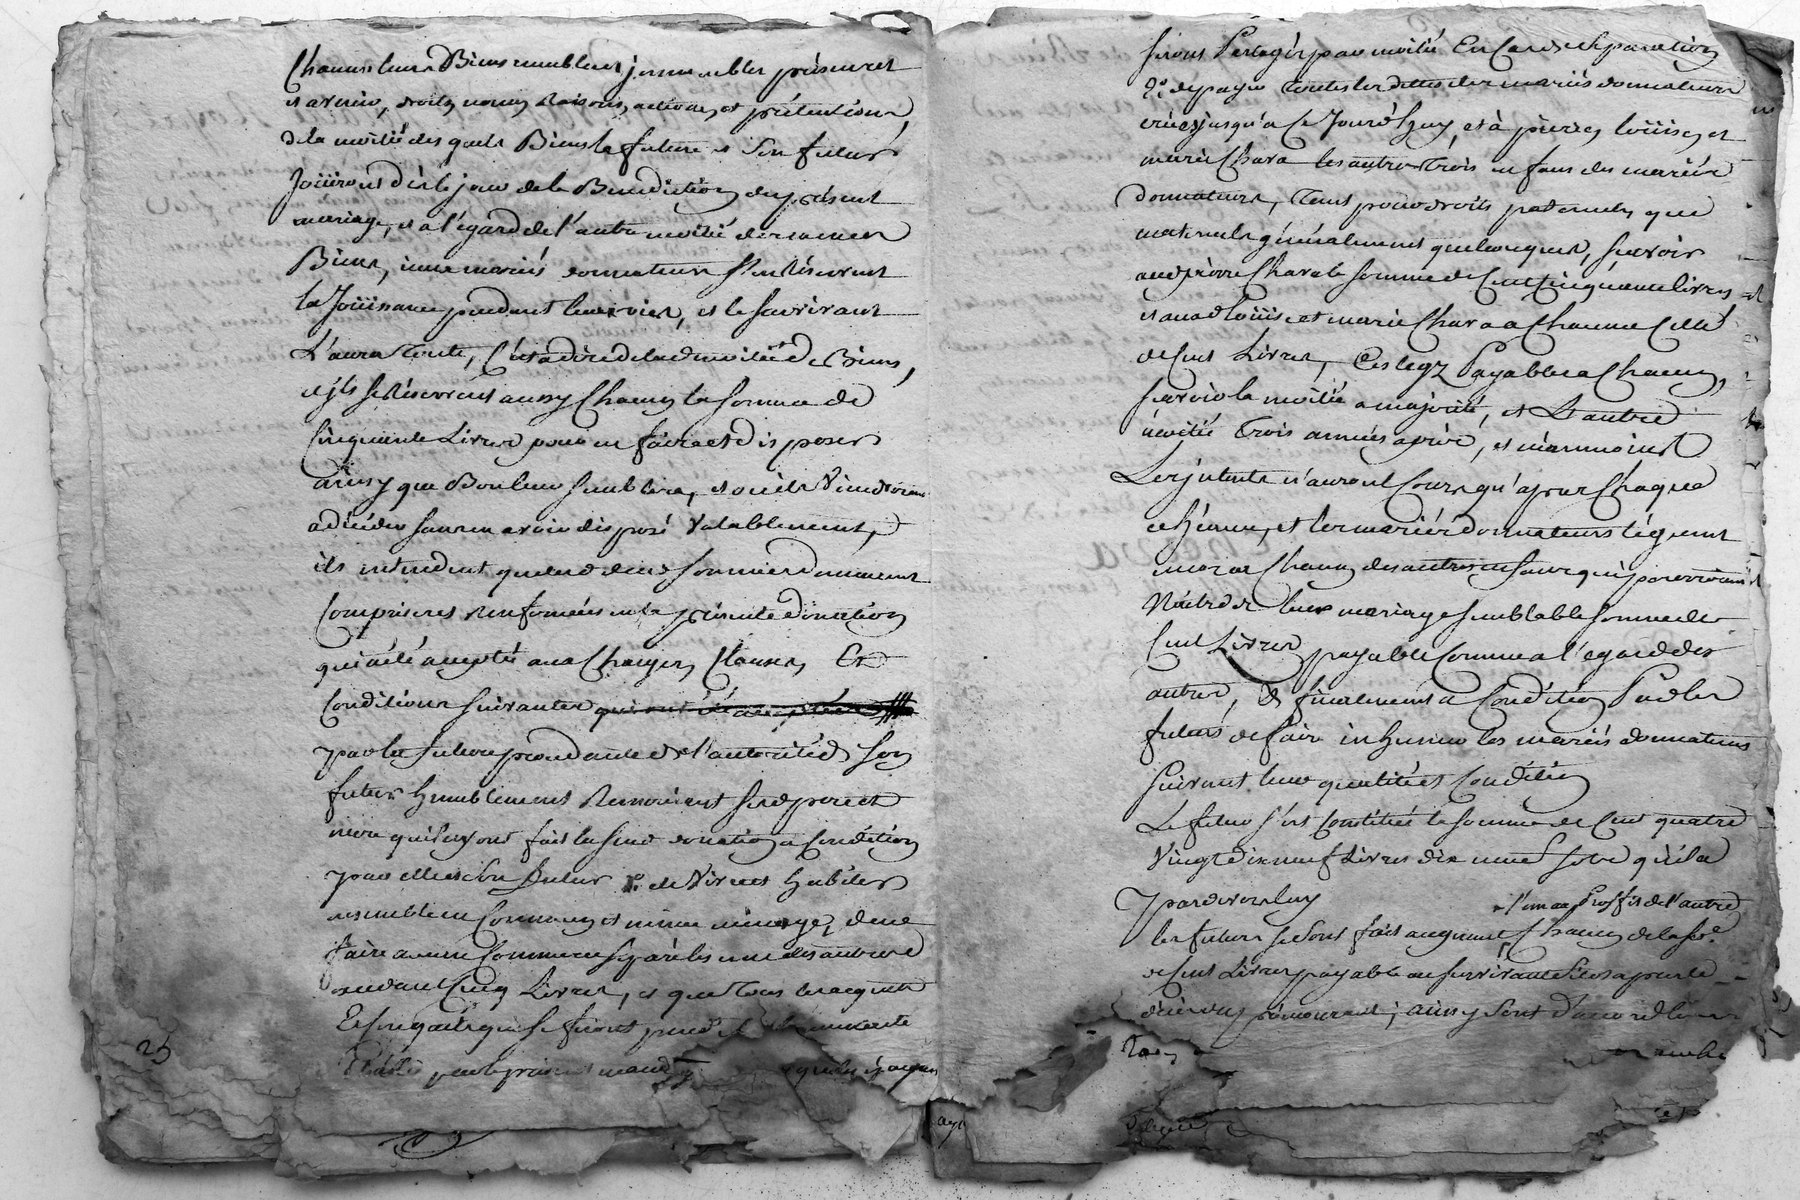 Chacun leurs Biens meubles et jmmeubles présents et
et avenir, droits, noms, Raisons, actions, et prétentions,
de la moitié des quels Biens la future et Son futur
Joüiront dès le jour de la Benediction du présent
mariage, et a l'égard de l'autre moitié des memes
Biens, iceux mariés donnateurs s'en Réservent
la Joüissance pendant leurs vies, et le survivant
L'aura toute, C'est a dire de lad. moitié de Biens,
et jls se Réservent aussy Chacun la somme de
Cinquante Livres pour en faire et disposer
ainsy que Bon leur semblera, et où ils Viendroient
a décéder sans en avoir disposé Valablement,
ils entendent que lesd. deux sommes demeurent
Comprises et Renfermées en la présente donation
qui a été acceptée aux Charges, Clauses, Et
Conditions suivantes qui ont été acceptées
par la future procedante de l'autorité de Son
futur humblement Remerciant sesd. pere et
mere qui luy ont fait la susd. donation a Condition
par elle et Son futur 1.o de Vivre et habiter
ensemble en Commun et même menage, d'en
faire aucun Commerce séparés les uns des autres
excedant Cinq Livres, et que tous les acquets
Et Conquets qui se feront pend.t
25
par le présent mand
Seront Partagés par moitié En Cas de séparation
2.o de payer toutes les dettes des mariés donnateurs
créées jusqu'a ce Jourd'huy, et à pierre, loüise, et
marie Chara les autres trois enfans des mariés
donnateurs, tant pour droits paternels que
maternels généralement quelconques, sçavoir
aud. pierre Chara la somme de Cent Cinquante livres
et auxd. loüise et marie Chara a Chacune Celle
de Cent Livres, Ces legs Payables a Chacun,
sçavoir la moitié a majorité, et L'autre
moitié trois années après, et néanmoins
Les jnterets n'auront Cours qu'apres Chaque
echéance, et les mariés donnateurs léguent
encor a Chacun des autres enfans qui pourroient
Naitre de leur mariage semblable somme de
Cent Livres payable Comme a l'egard des
autres, Et finalement a Condition Par les
futurs de faire inhumer les mariés donnateurs
suivant leur qualité et Condition
Le futur s'est Constitué la somme de Cent quatre
Vingt dix neuf Livres dix neuf sols qu'il a
pardevers luy
l'un au Proffit de l'autre
les futurs se sont fait augment Chacun de la so.e
de Cent Livres payable au survivant Sitost apres le
décès du premourant; ainsy sont d'accord